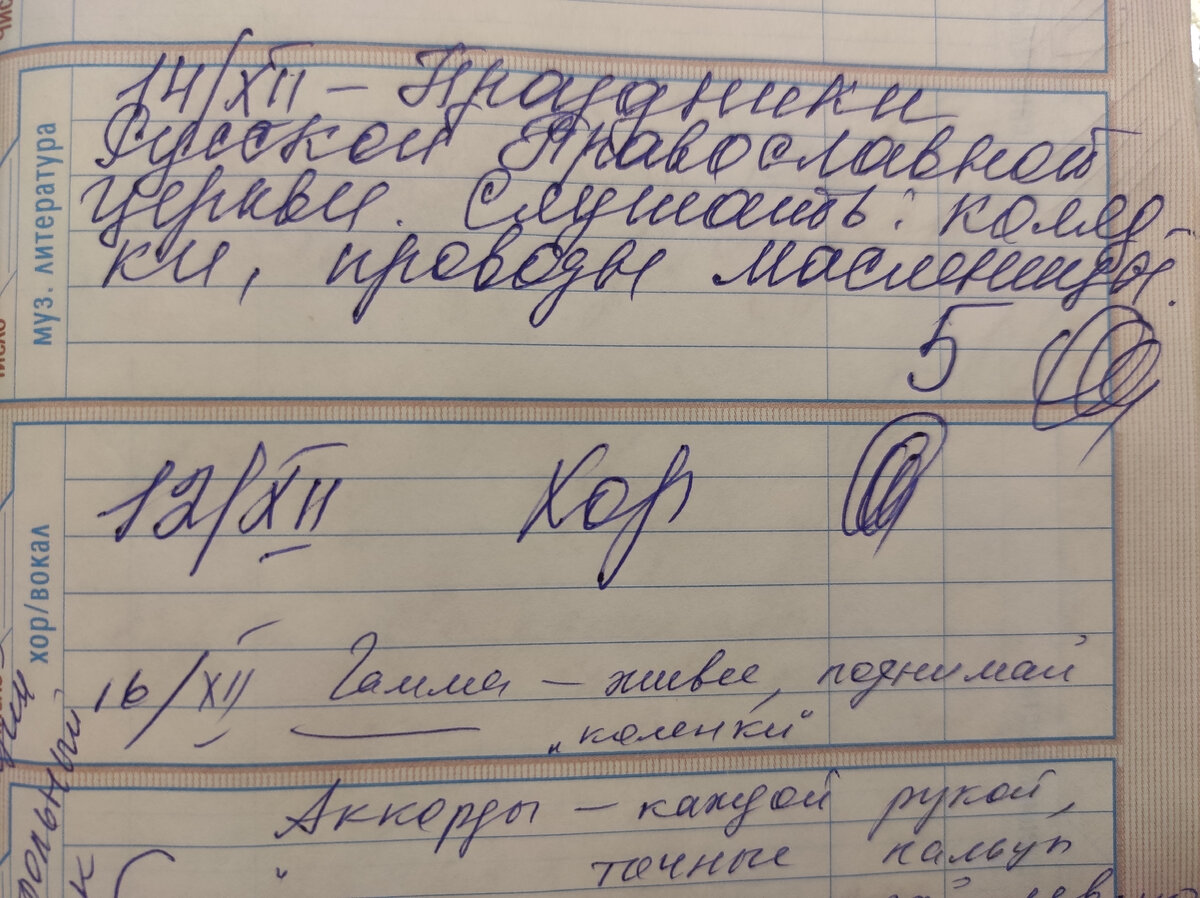 муз. литература
14/XII – Праздники
Русской Православной
церкви. Слушать: коляд-
ки, проводы масленицы.
5
хор/вокал
12/XII Хор
16/XII Гамма – живее, поднимай
„коленки"
Аккорды – каждой рукой,
точные пальцы